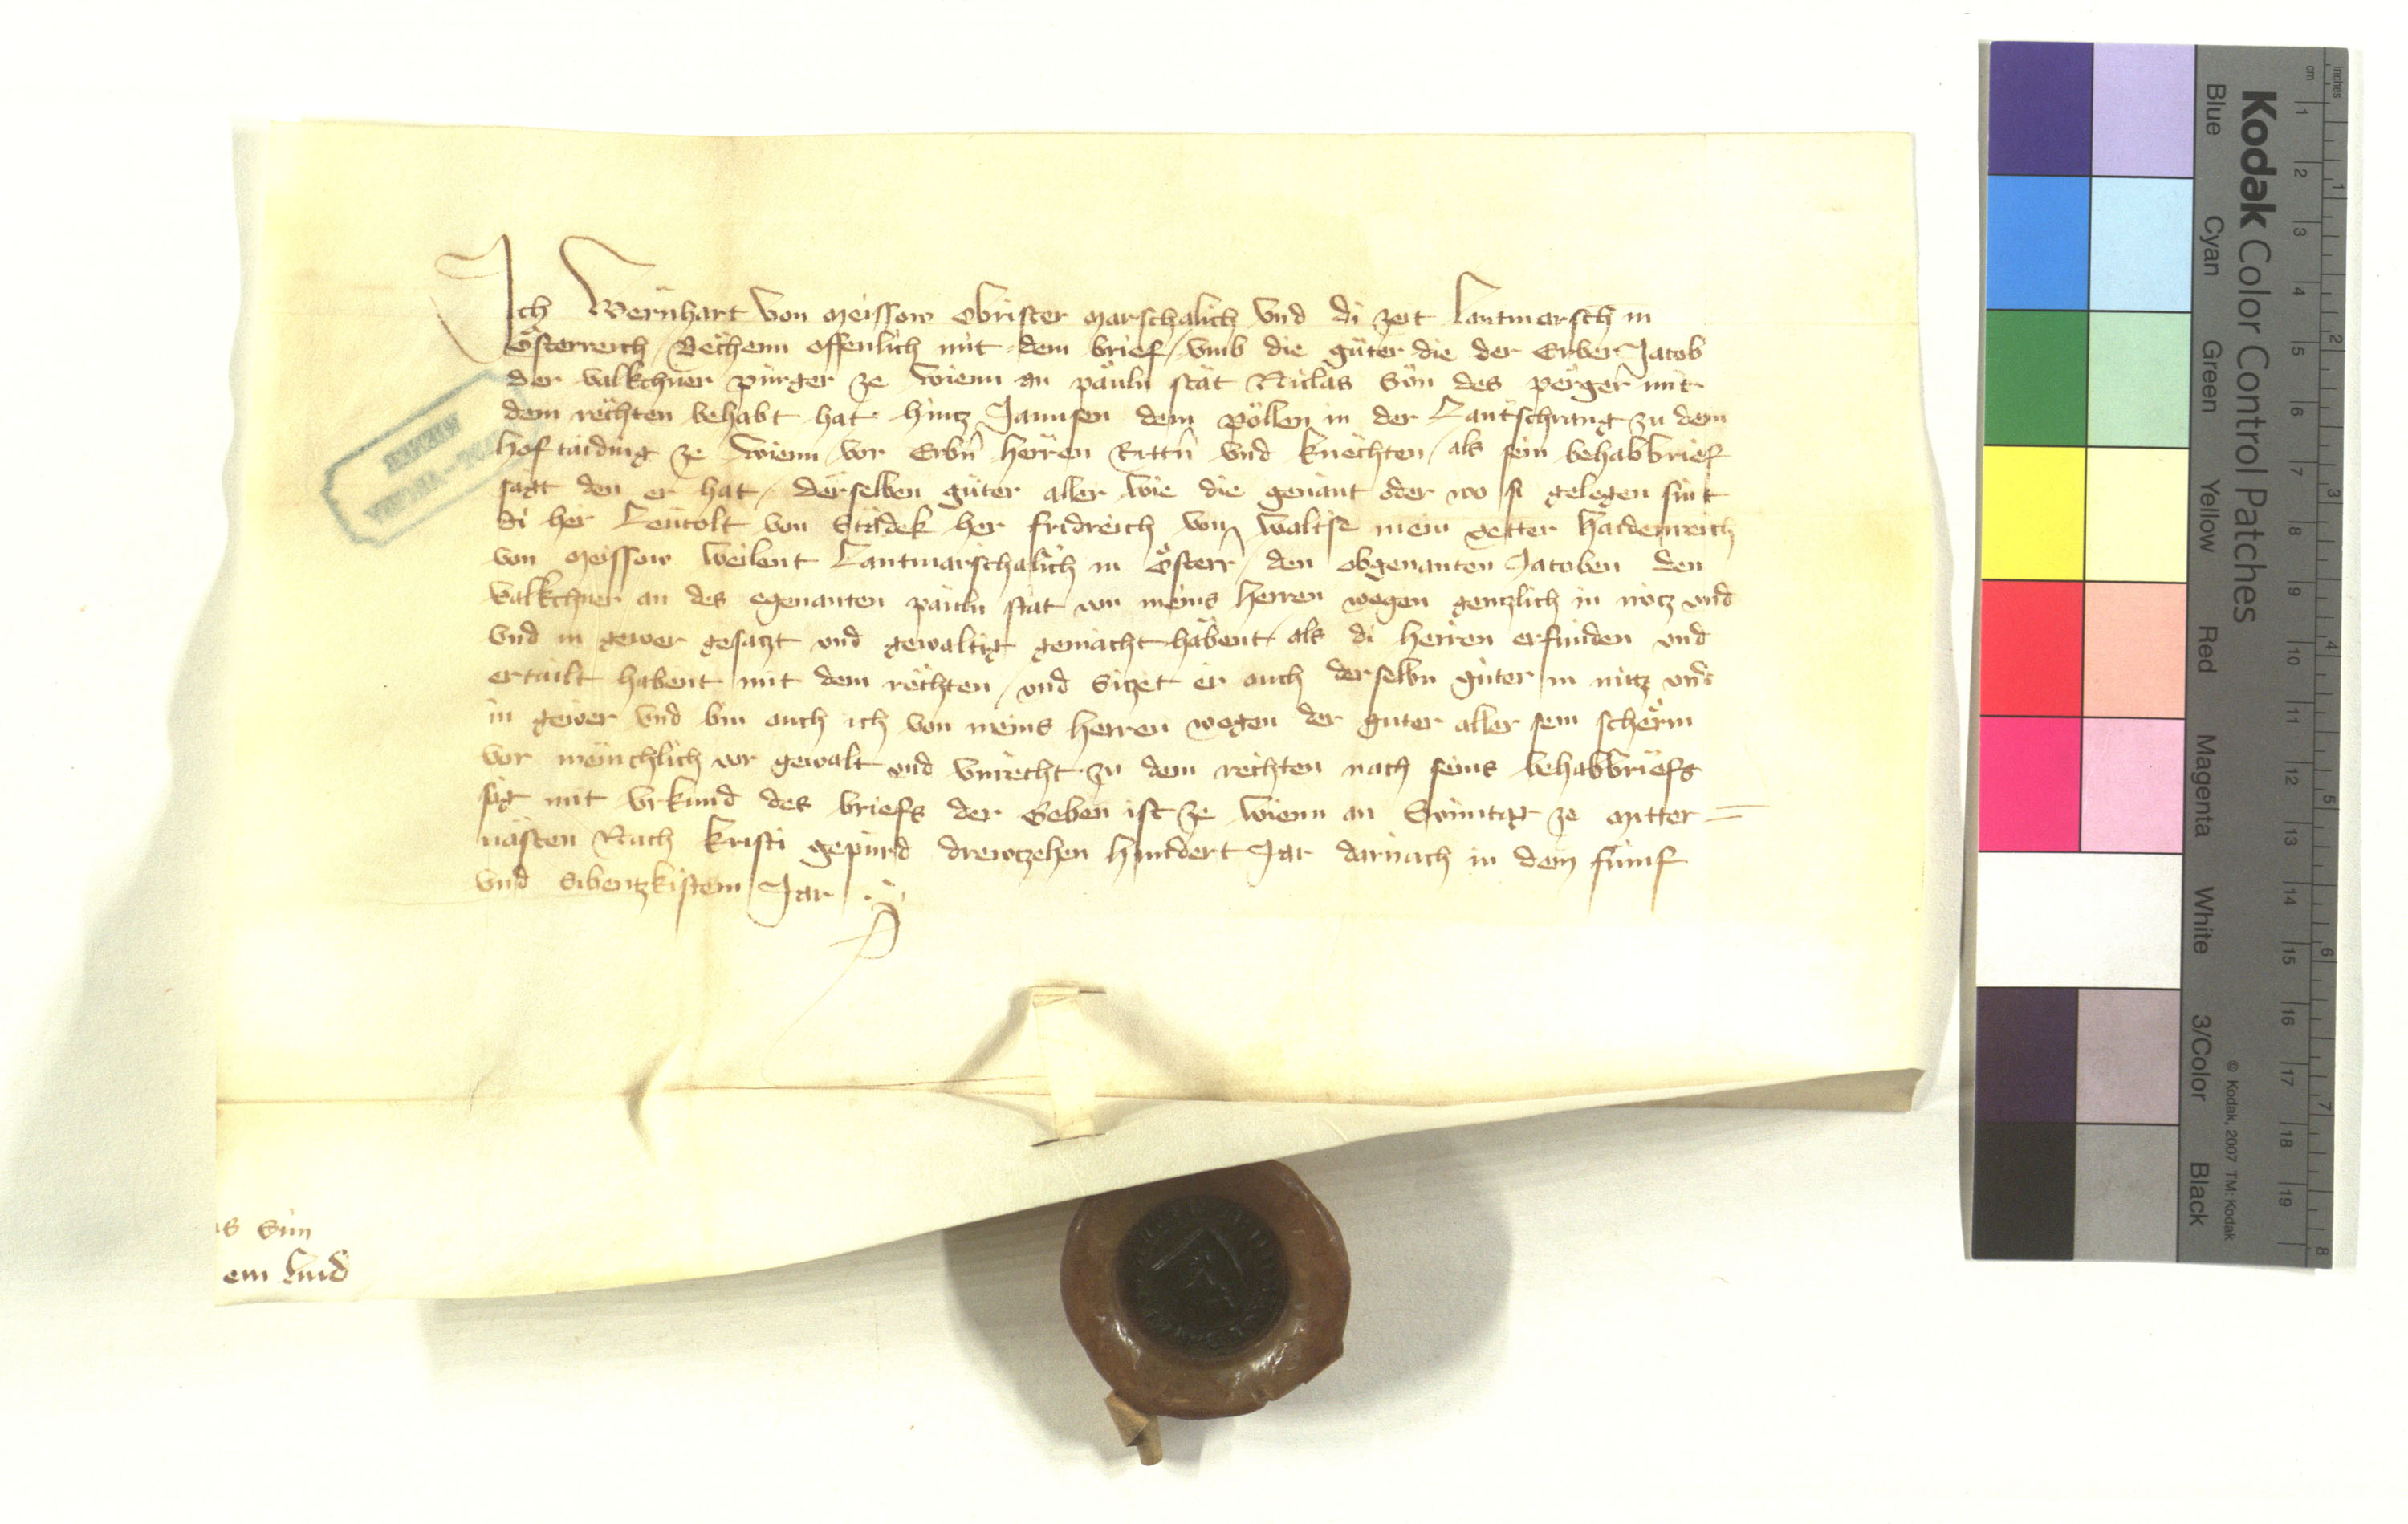 Ich Wernhart von Meissow Obrister Marschalich vnd di zeit Lantmarsch in
Österreich / Vechenn offenlich mit dem brief / vmb die güter die der Erber Jacob
der valkchner pürger ze wienn an päuln stat Niclas Sön des perger mit
dem rëchten behabt hat hintz Jannsen dem pöllen in der Lantschrang zu dem
hoftaiding ze wienn vor Erbn herren Rittn vnd knechten / als sein behabbrief
sagt den er hat / derselben güter aller wie die genant oder wo si gelegen sint
di her Leutolt von Stadek her fridreich von walsse mein vetter haidenreich
von Meissow weilent Lantmarschalich in Österr / den obgenanten Jacoben den
valkchner an des egenanten päuln stat von meins herren wegen gentzlich in nücz vnd
vnd in gewer gesatzt vnd gewaltig gemacht habent / als di herren erfunden vnd
ertailt habent mit dem rëchten / vnd Siczet er auch derselbn güter in nutz vnd
in gewer vnd bin auch ich von meins herren wegen der guter aller sein scherm
vor mënichlich vor gewalt vnd vnrecht zu dem rechten nach seins behabbriefs
sag mit vrkund des briefs der Geben ist ze wienn an Sunntag ze mitter=
uasten Nach kristi gepurd drewczehen hundert Jar darnach in dem fümf
vnd Sibentzkistem Jar
as sün
em Lud
Kodak Color Control Patches
Blue Cyan Green Yellow Red Magenta White 3/Color Black
© Kodak, 2007 TM: Kodak
cm 1 2 3 4 5 6 7 8 9 10 11 12 13 14 15 16 17 18 19
inches 1 2 3 4 5 6 7 8